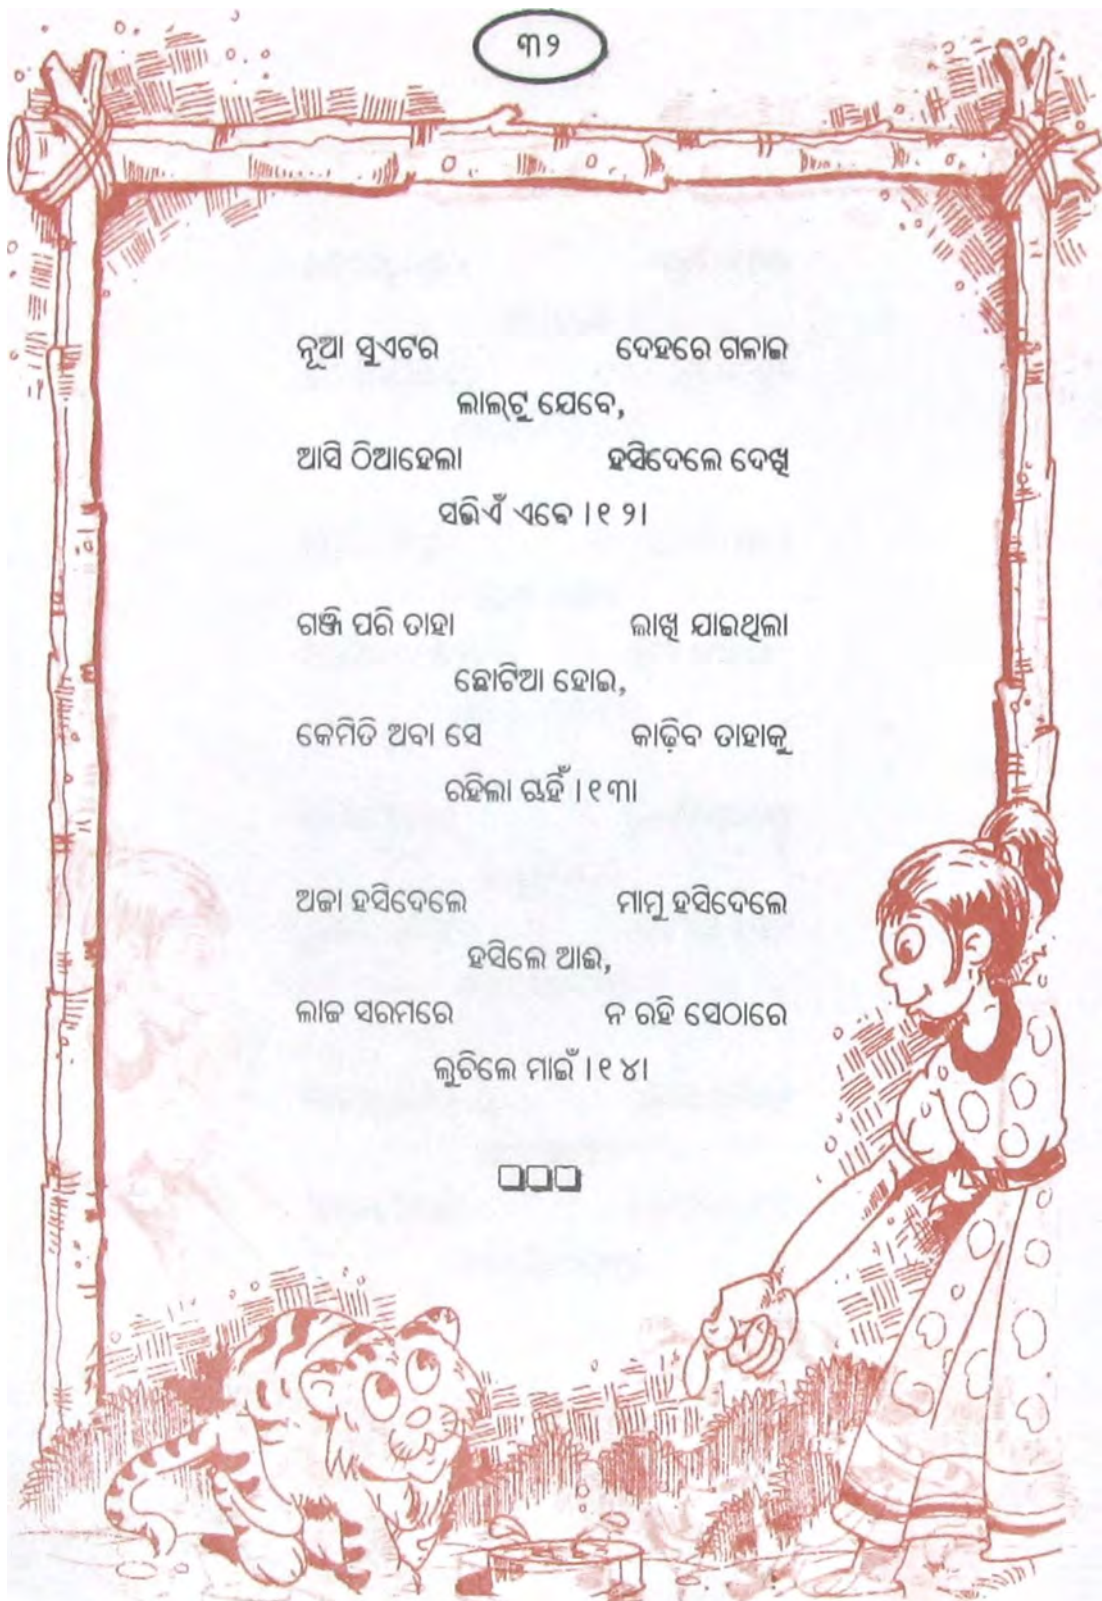 ୩୨
ନୂଆ ସୁଏଟର ଦେହରେ ଗଳାଇ
ଲାଲ୍‌ଟୁ ଯେବେ,
ଆସି ଠିଆହେଲା ହସିଦେଲେ ଦେଖି
ସଭିଏଁ ଏବେ ।୧୨।
ଗଞ୍ଜି ପରି ତାହା ଲାଖି ଯାଇଥିଲା
ଛୋଟିଆ ହୋଇ,
କେମିତି ଅବା ସେ କାଢ଼ିବ ତାହାକୁ
ରହିଲା ଚାହିଁ ।୧୩।
ଅଜା ହସିଦେଲେ ମାମୁ ହସିଦେଲେ
ହସିଲେ ଆଈ,
ଲାଜ ସରମରେ ନ ରହି ସେଠାରେ
ଲୁଚିଲେ ମାଇଁ ।୧୪।